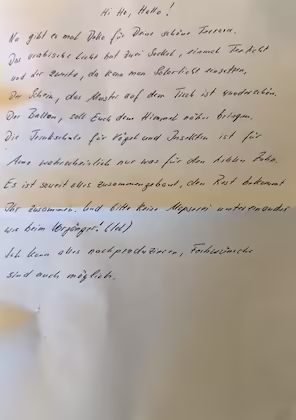 Hi Ho, Hallo!
Da gibt es mal Deko für Deine schöne Terrasse.
Das arabische Licht hat zwei Sockel, einmal Teelicht
und der zweite, da kann man Solarlicht einsetzen,
Der Schein, das Muster auf dem Tisch ist wunderschön.
Der Ballon, soll Euch dem Himmel näher bringen.
Die Trinkschale für Vögel und Insekten ist für
wahrscheinlich nur was für den hohlen Zahn.
Es ist soweit alles zusammengebaut, den Rest bekommt
Ihr zusammen. Und bitte keine untereinander
wie beim Vorgänger! (Ich)
Ich kann alles nachproduzieren, Farbwünsche
sind auch möglich.